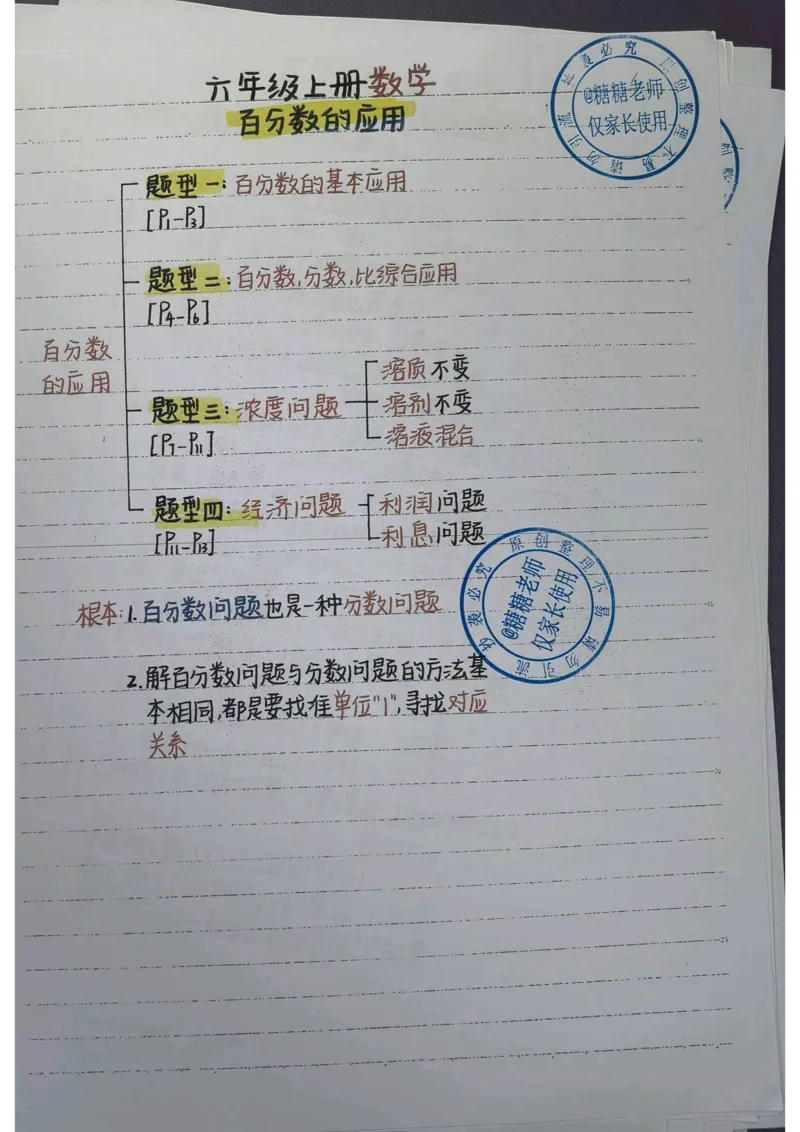 六年级上册数学
百分数的应用
@糖糖老师
仅家长使用
题型一:百分数的基本应用
[P1-P3]
题型二:百分数,分数,比综合应用
[P4-P6]
百分数
的应用
题型三:浓度问题
溶质不变
溶剂不变
溶液混合
[P7-P11]
题型四:经济问题
利润问题
利息问题
[P11-P13]
原创整理不易 请勿引流 抄袭必究
@糖糖老师
仅家长使用
根本:1.百分数问题也是一种分数问题
2.解百分数问题与分数问题的方法基
本相同,都是要找准单位"1",寻找对应
关系